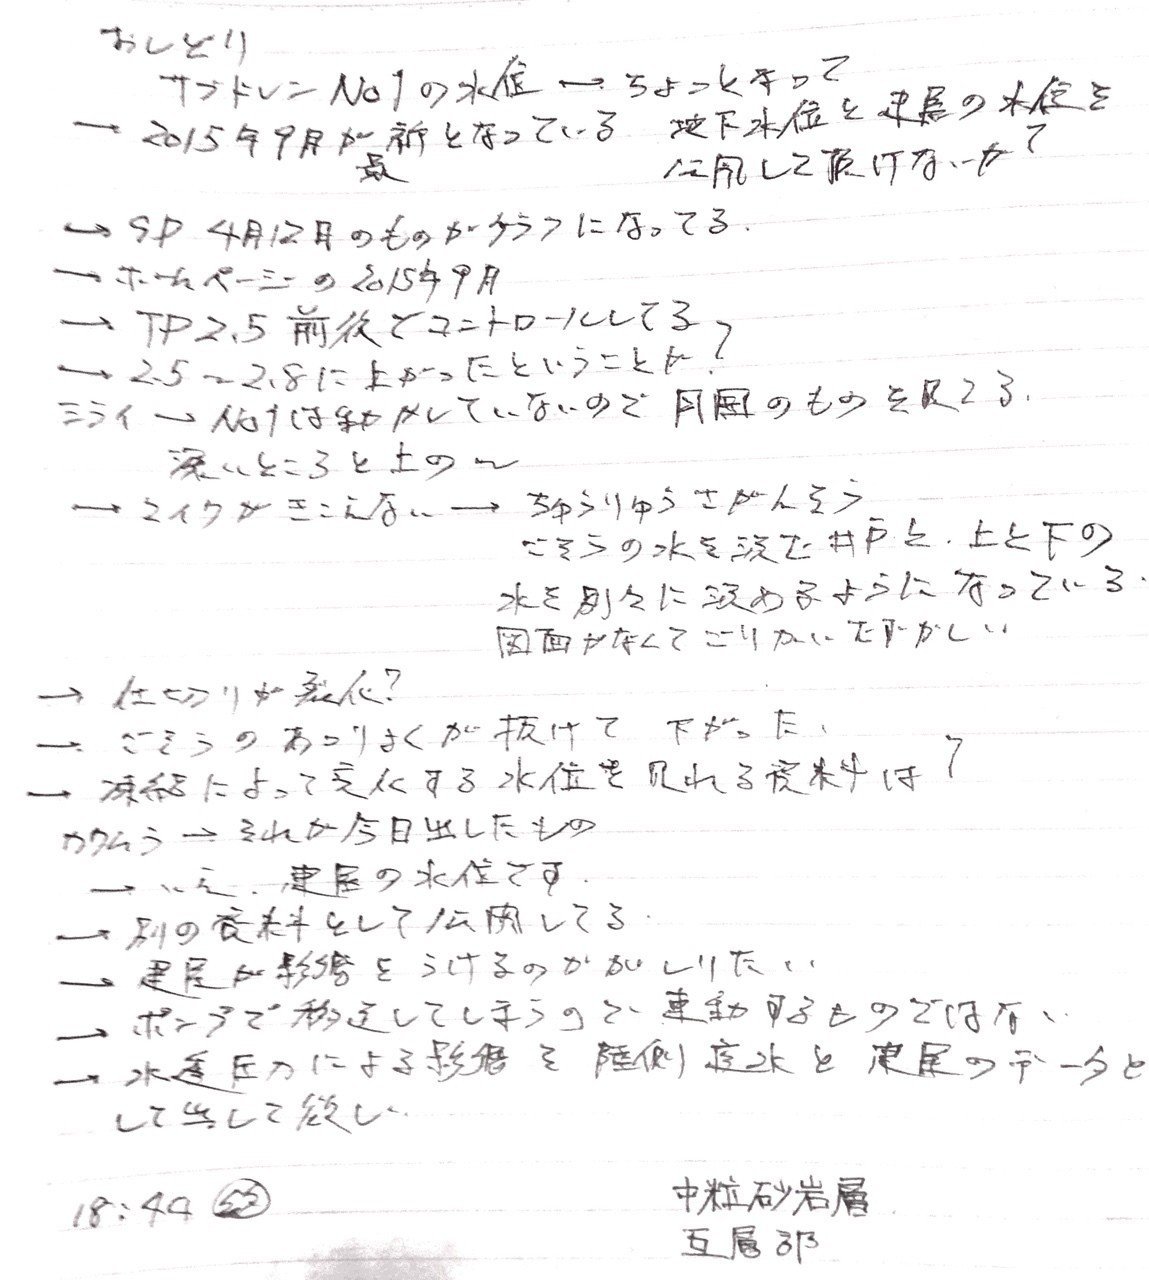 おしどり
サブドレンNo1の水位→ちょっとまって
→2015年9月が最新となっている
地下水位と建屋の水位を
公開して頂けないか?
→SD 4月12日のものがグラフになってる.
→ホームページの2015年9月
→TP2.5前後でコントロールしてる
→2.5~2.8に上がったということか?
ミライ→No1は動かしていないので周囲のものを見てる.
深いところと上の~
→マイクがきこえない→ちゅうりゅうさがんそう
ごそうの水を汲む井戸と.上と下の
水を別々に汲めるようになっている.
図面がなくてごりかいむずかしい
→仕切りが劣化?
→ごそうのあつりょくが抜けて下がった.
→凍結によって変化する水位を見れる資料は?
カワムラ→それが今日出したもの
→いえ.建屋の水位です.
→別の資料として公開してる.
→建屋が影響をうけるのかがしりたい
→ポンプで移送してしまうので連動するものではない
→水圧力による影響を陸側遮水と建屋のデータと
して出して欲しい.
18:49 終
中粒砂岩層
互層部